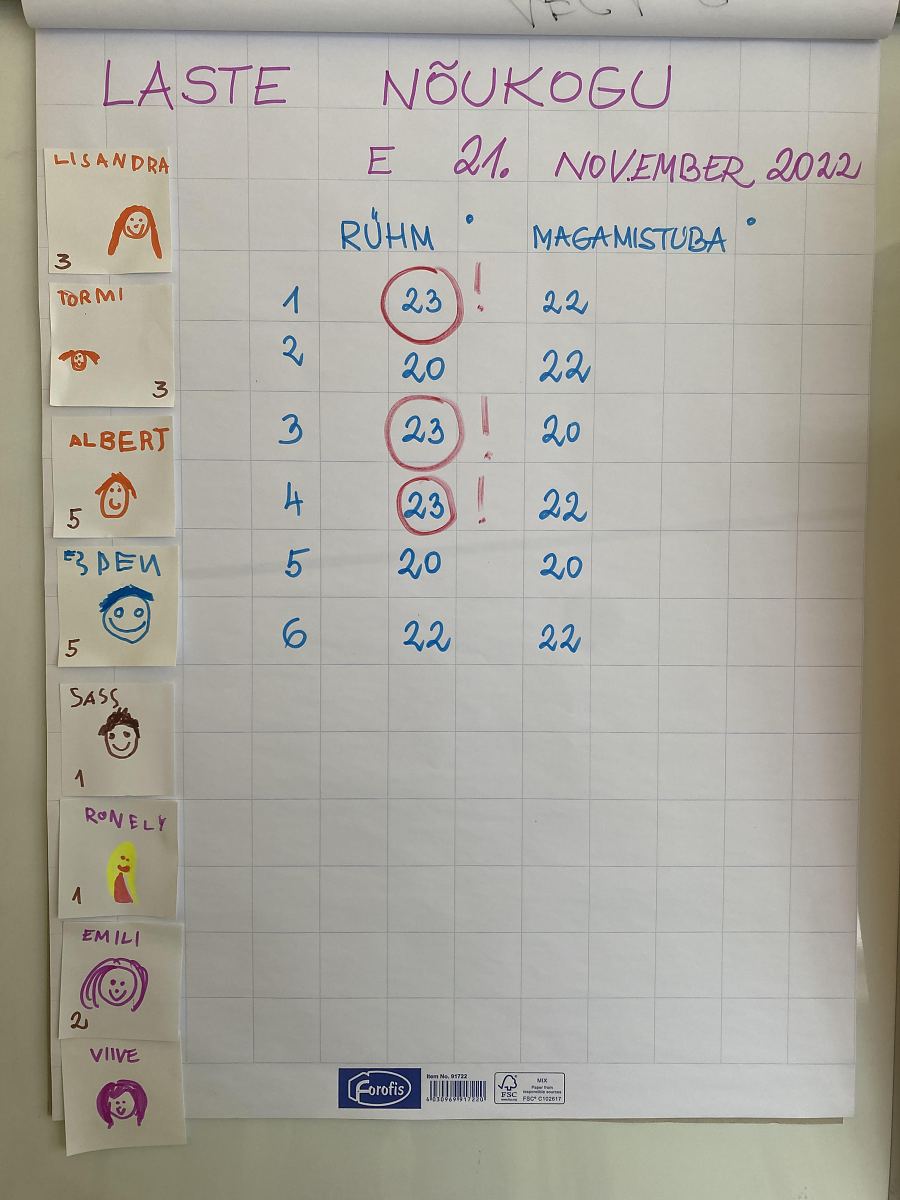 LASTE NÕUKOGU
E 21. NOVEMBER 2022
RÜHM ° MAGAMISTUBA °
1 23 ! 22
2 20 22
3 23 ! 20
4 23 ! 22
5 20 20
6 22 22
LISANDRA
3
TORMI
3
ALBERT
5
5
SASS
1
RONELY
1
EMILI
2
VIIVE
Forofis
Item No. 91722
4 030969 917220
FSC
MIX
Paper from
responsible sources
FSC® C102617